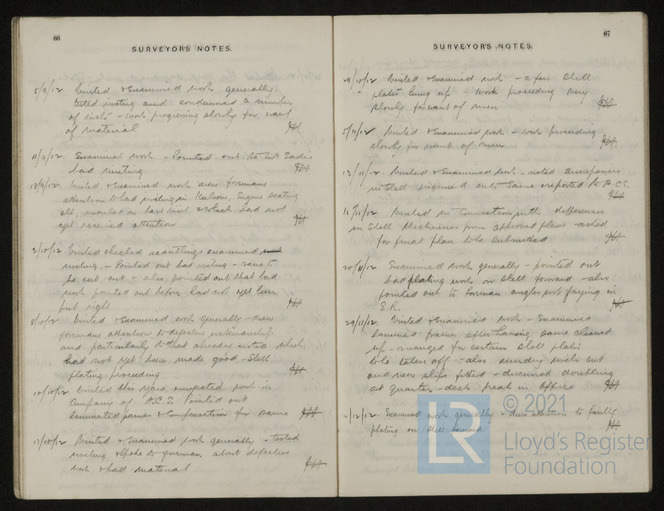 66
SURVEYORS NOTES.
5/9/12 Visited & Examined work generally
tested riveting and condemned a number
of rivets - work progressing slowly for want
of material
11/9/12 Examined work - Pointed out to
bad riveting
18/9/12 Visited & Examined work drew foremans
attention to bad riveting in Keelson, Engine seating
etc, marked on last visit & which had not
yet received attention
2/10/12 Visited checked scantlings examined
riveting - Pointed out bad riveting - same to
be cut out - also pointed out that bad
work pointed out before had not yet been
put right
8/10/12 Visited & Examined work generally - drew
foremans attention to defective workmanship
and particularly to that already noted which
had not yet been made good - Shell
plating proceeding
10/10/12 Visited this yard inspected work in
Company of A.C.S. Pointed out
laminated frames &
17/10/12 Visited & Examined work generally - tested
riveting & spoke to foreman about defective
work & bad material
67
SURVEYORS NOTES.
29/10/12 Visited & Examined work - a few Shell
plates being up - work proceeding very
slowly for want of men
5/11/12 Visited & Examined work - work proceeding
slowly for want of men
13/11/12 Visited & Examined work - noted discrepancy
in Shell & same reported to A.C.S.
16/11/12 Visited in Connection with difference
in Shell thicknesses from approved plan - asked
for final plan to be submitted
20/11/12 Examined work generally - pointed out
bad plating work on Shell forward - also
pointed out to foreman angles not faying in
E.R.
29/11/12 Visited & Examined work - Examined
laminated frames after having same cleaned
up - arranged for certain Shell plates
to be taken off - also sundry rivets cut
out and new slips fitted - discussed doubling
at quarter-deck break in Office
4/12/12 Examined work generally - drew attention to faulty
plating on Shell forward
© 2021
LR
Lloyd's Register
Foundation